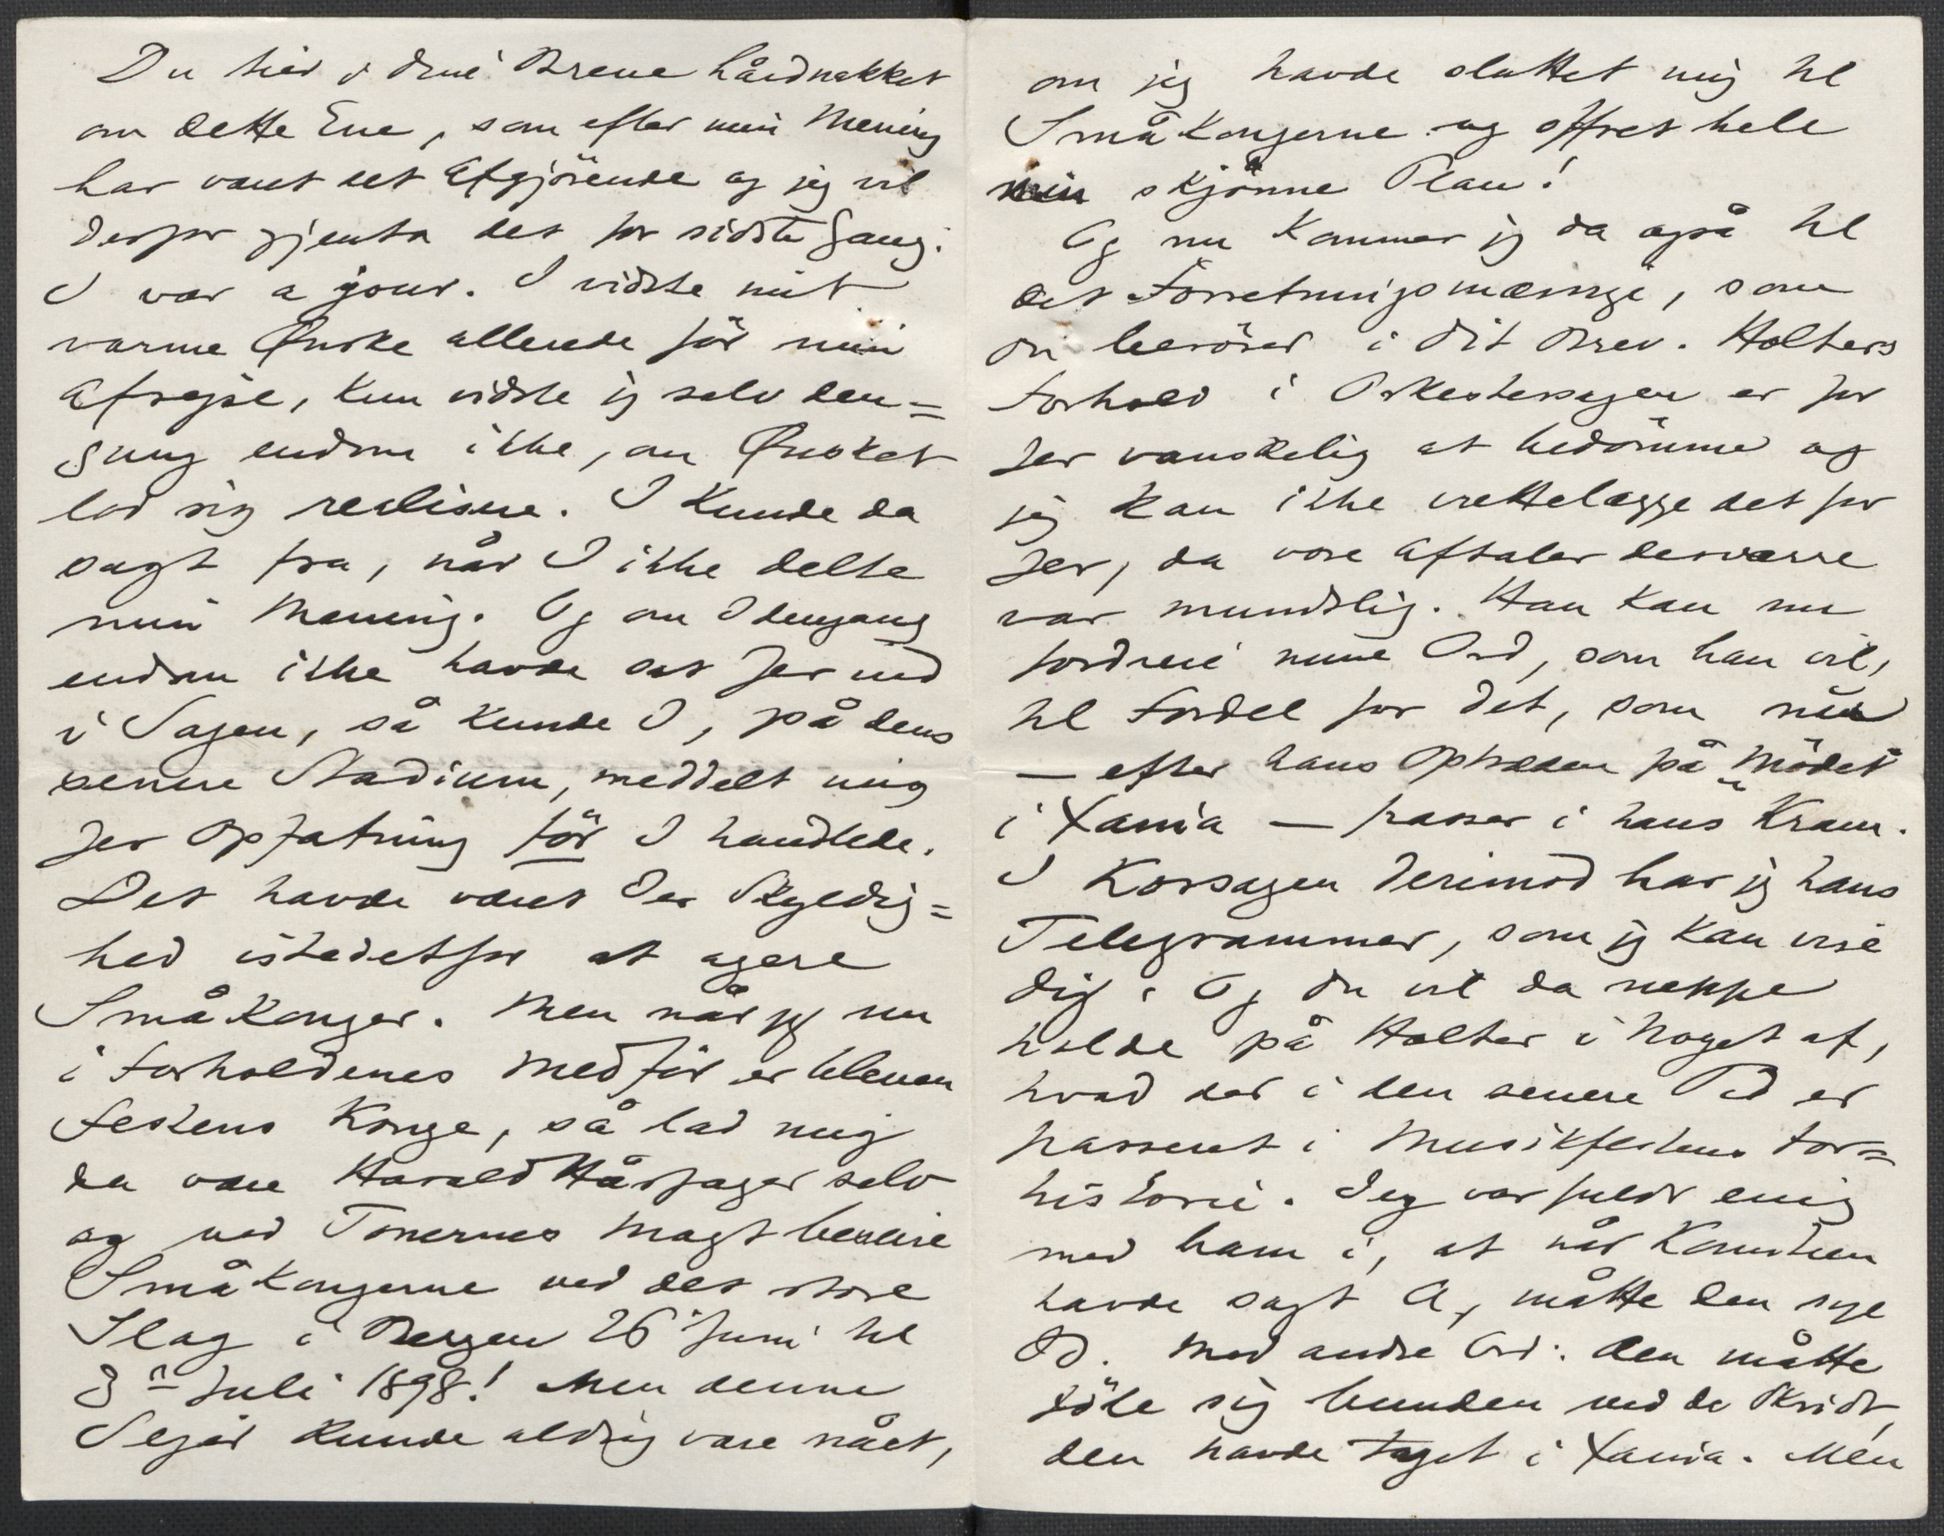 Du tier i dine Breve hårdnakket
om dette Ene, som efter min Mening
har været det Afgjörende og jeg vil
derfor gjenta det for sidste Gang:
I var a jour. I vidste mit
varme Ønske allerede för min
Afrejse, kun vidste jeg selv den=
gang endnu ikke, om Ønsket
lod sig realisere. I kunde da
sagt fra, når I ikke delte
min Mening. Og om I dengang
endnu ikke havde sat Jer ind
i Sagen, så kunde I, på dens
senere Stadium, meddelt mig
Jer Opfatning för I handlede.
Det havde været Jer Skyldig=
hed istedetfor at agere
Småkonger. Men når jeg nu
i Forholdenes Medför er bleven
Festens Konge, så lad mig
da være Harald Hårfager selv
og ved Tonernes Magt beseire
Småkongerne ved det store
Slag i Bergen 26 Juni til
3die Juli 1898! Men denne
Sejer kunde aldrig være nået,
om jeg havde sluttet mig til
Småkongerne og offret hele
min skjönne Plan!
Og nu kommer jeg da også til
det Forretningsmæssige, som
du berörer i dit Brev. Holters
Forhold i Orkestersagen er for
Jer vanskelig at bedömme og
jeg kan ikke rettelægge det for
Jer, da vore Aftaler desværre
var mundtlig. Han kan nu
fordreie mine Ord, som han vil,
til Fordel for det, som nu
– efter hans Optræden på Mödet
i Xania – passer i hans Kram.
I Korsagen derimod har jeg hans
Telegrammer, som jeg kan vise
dig. Og du vil da neppe
holde på Holter i Noget af,
hvad der i den senere Tid er
passeret i Musikfestens For=
historie. Jeg var fuldt enig
med ham i, at når Komiteen
havde sagt A, måtte den sige
B. Med andre Ord: den måtte
föle sig bunden ved de Skridt,
den havde taget i Xania. Men